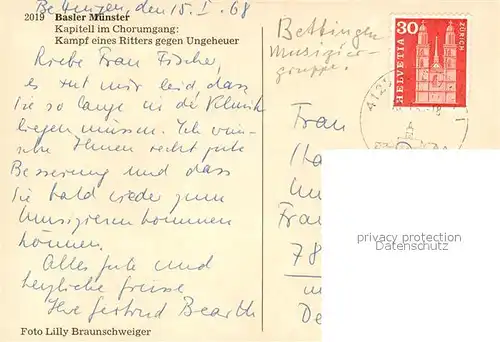 Bettingen, den 15. I. 68
2019 Basler Münster
Kapitell im Chorumgang:
Kampf eines Ritters gegen Ungeheuer
Liebe Frau Fischer,
es tut mir leid, dass
Sie so lange in der Klinik
liegen müssen. Ich wün-
sche Ihnen recht gute
Besserung und dass
Sie bald wieder zum
Musizieren kommen
können.
Alles gute und
herzliche Grüsse
Ihre Gertrud
Foto Lilly Braunschweiger
Bettingen
Musizier-
gruppe.
30
HELVETIA
ZÜRICH
Frau
Fran
78
privacy protection
Datenschutz
De